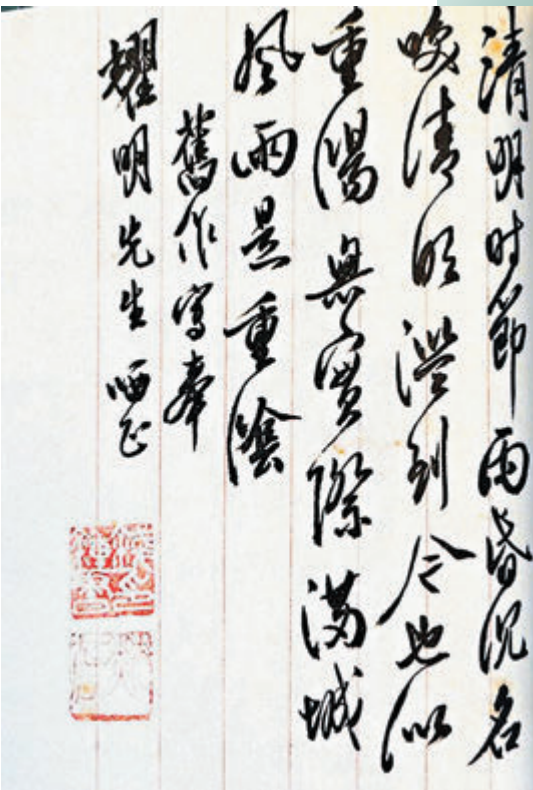 清明时節雨昏沉名
唤清明濫到今也似
重陽無實際满城
風雨是重陰
舊作寫奉
耀明先生哂正